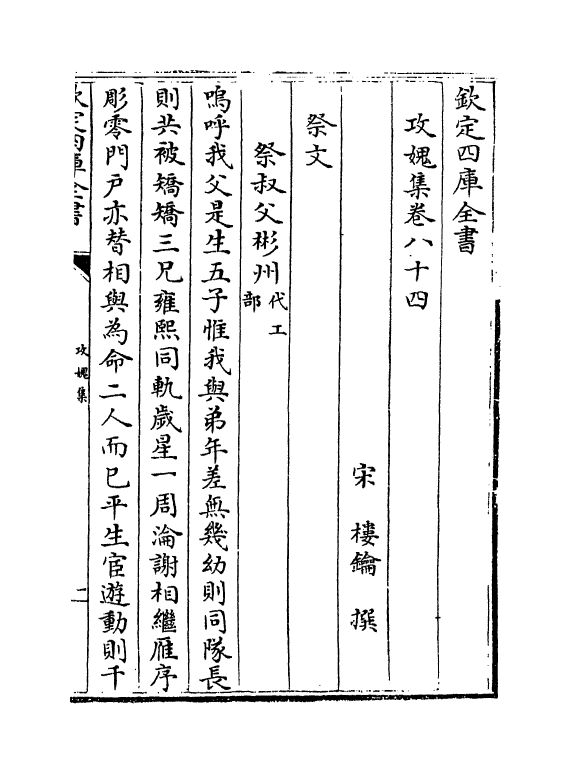 欽定四庫全書
攻媿集卷八十四
宋 樓鑰 撰
祭文
祭叔父彬州代工部
嗚呼我父是生五子惟我與弟年差無幾幼則同隊長
則共被矯矯三兄雍熙同軌歲星一周淪謝相繼雁序
彫零門户亦替相與為命二人而已平生宦遊動則千
欽定四庫全書
攻媿集